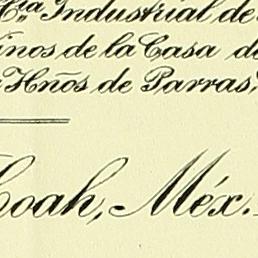 Cía Industrial de
inos de la Casa de
Hños de Parras,
Coah, Méx.